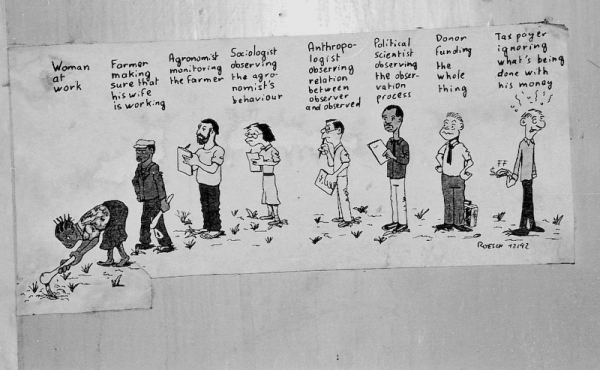 Woman
at
work
Farmer
making
sure that
his wife
is working
Agronomist
monitoring
the farmer
Sociologist
observing
the agro-
nomist's
behaviour
Anthropo-
logist
observing
relation
between
observer
and observed
Political
scientist
observing
the obser-
vation
process
Donor
funding
the
whole
thing
Tax payer
ignoring
what's being
done with
his money
FF
S
ROESCH 12/92